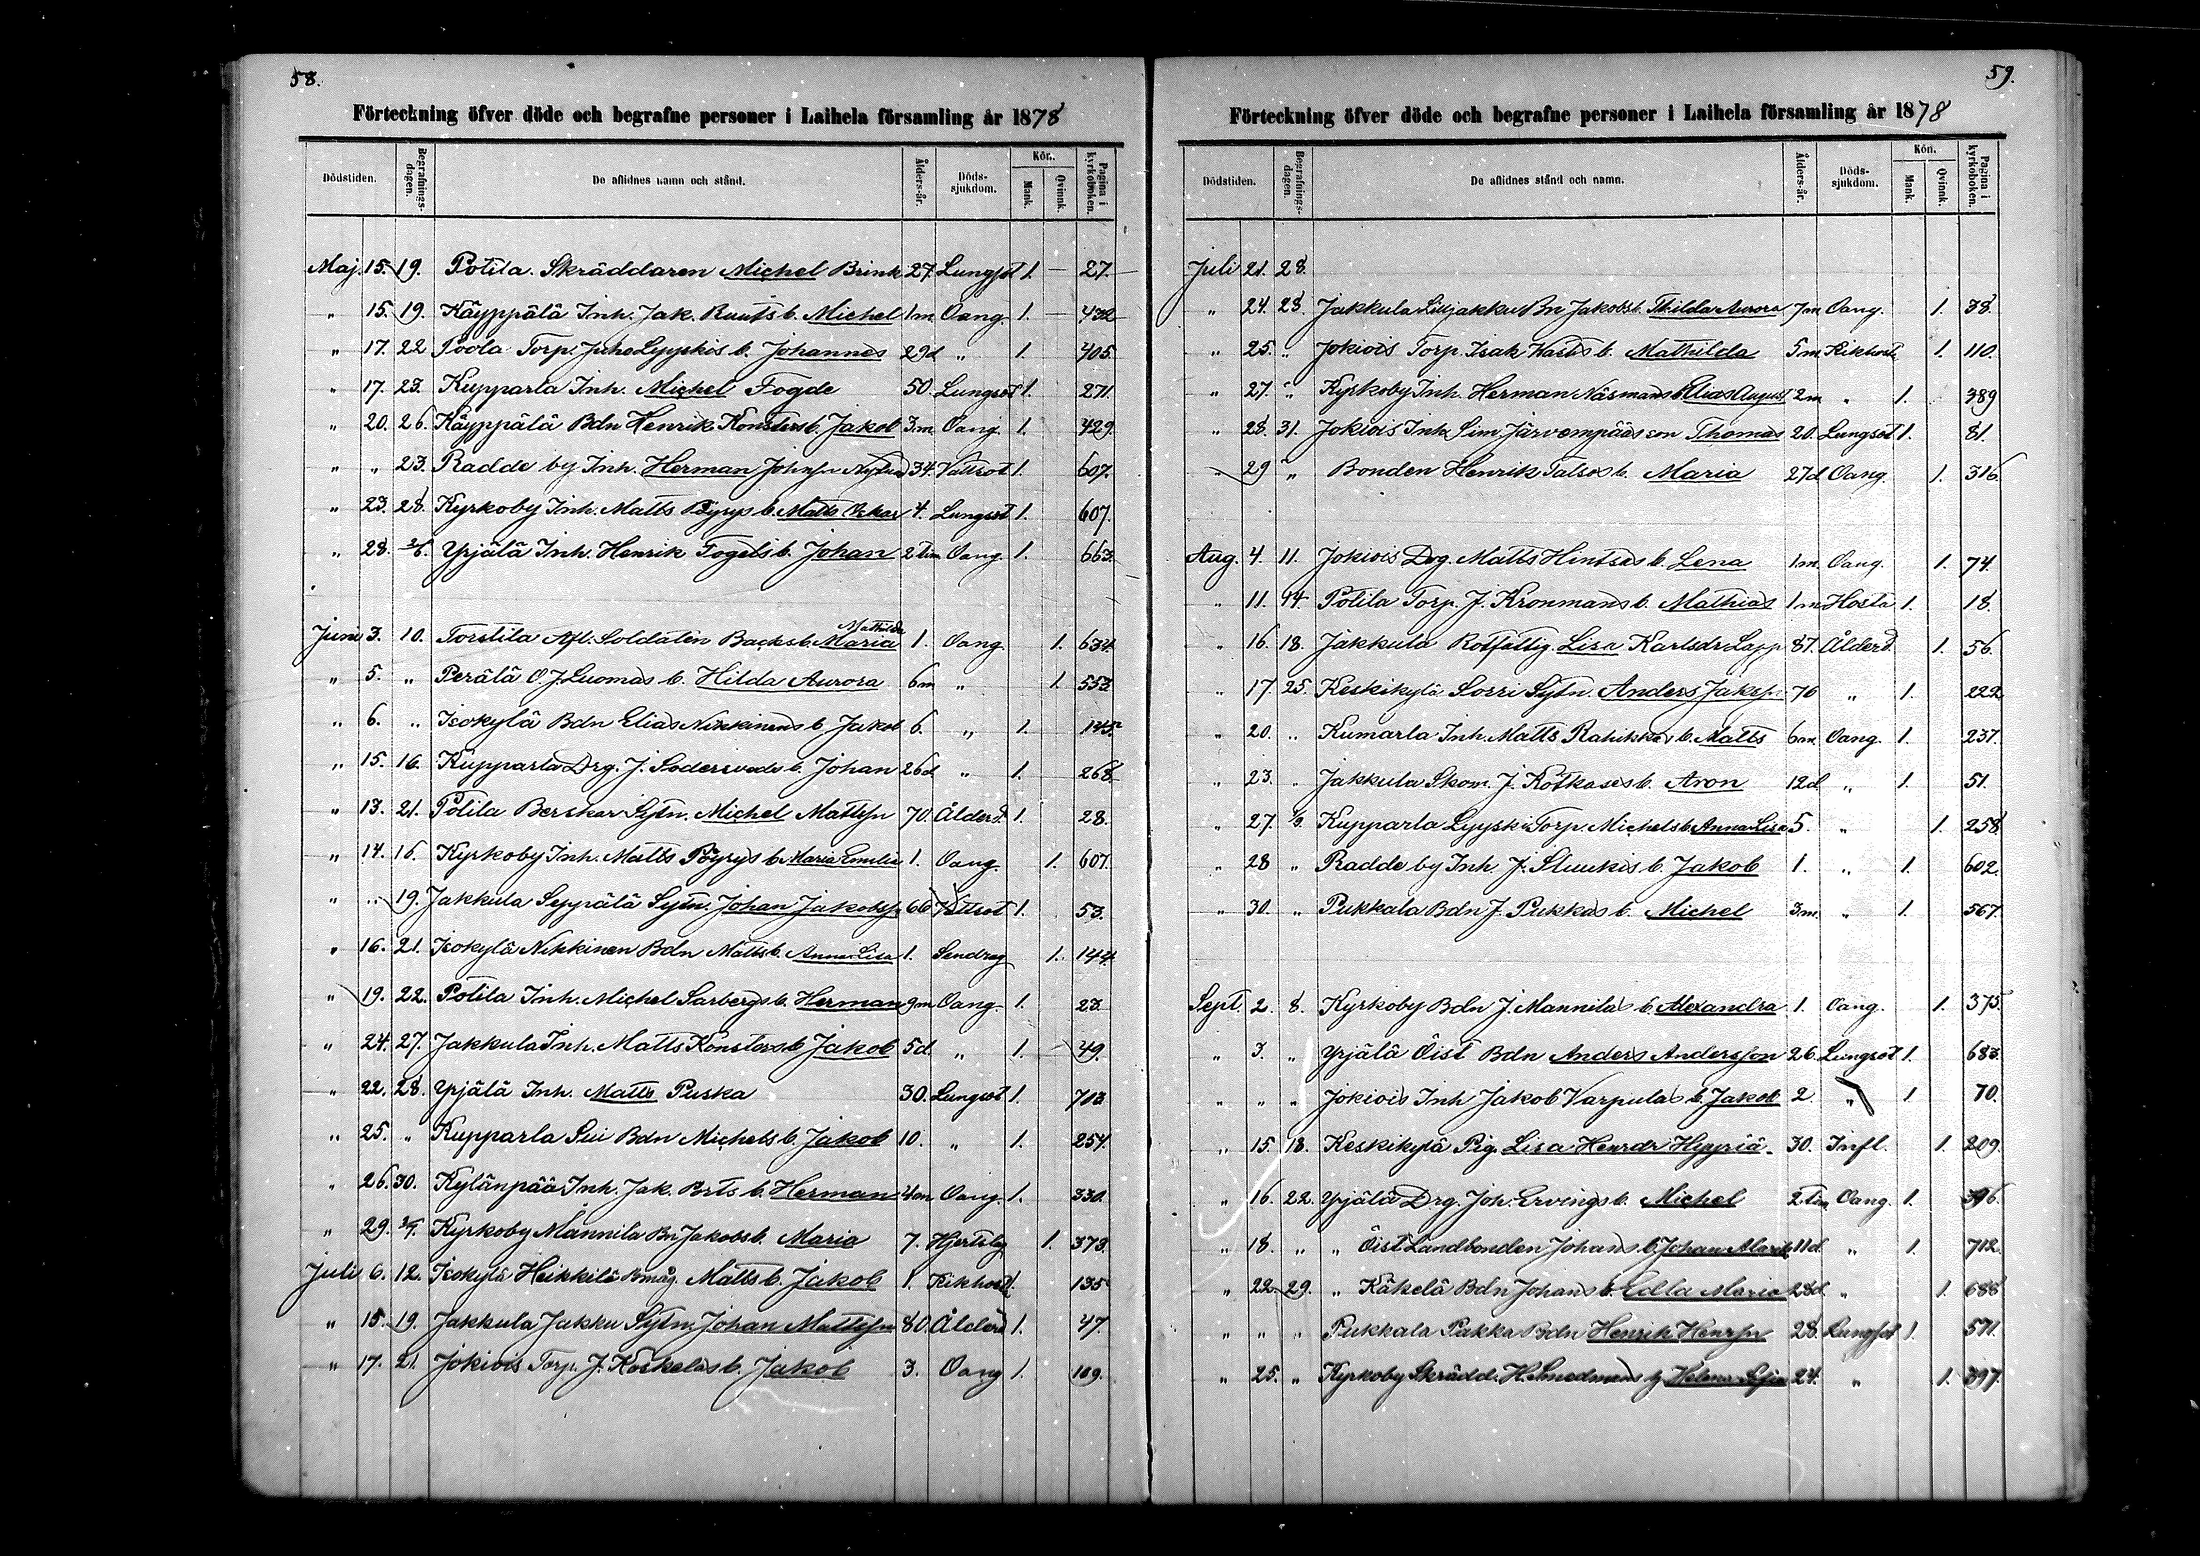 58.
Förteckning öfver döde och begrafne personer i Laihela församling år 1878
Dödstiden. Begrafnings-dagen. De aflidnes namn och stånd. Ålders-år. Döds-sjukdom. Kön. Mank. Qvinnk. Pagina i kyrkoboken.
Maj 15. 19. Potila Skräddaren Michel Brink 27. Lungsot 1. 27.
" 15. 19. Käyppälä Inh. Jak. Ruuts b. Michel 1m Oang. 1. 432
" 17. 22 Poola Torp. Juho Lyyskis b. Johannes 29d " 1. 405.
" 17. 23. Kupparla Inh. Michel Fogde 50. Lungsot 1. 271.
" 20. 26. Käyppälä Bdn Henrik Konsters b. Jakob 3.m Oang. 1. 429.
" " 23. Radde by Inh. Herman Johnsn 34. Vattsot 1. 607.
" 23. 28. Kyrkoby Inh. Matts Pöyrys b. Matts Oskar 4. Lungsot 1. 607.
" 28. Yrjälä Inh. Henrik Fogels b. Johan 2 tim Oang. 1. 663.
Juni 3. 10. Torstila Afl. Soldaten Backs b. Maria Mathilda 1. Oang. 1. 634.
" 5. " Perälä O. J. Luomas b. Hilda Aurora 6m " 1. 553
" 6. " Isokylä Bdn Elias Nikkinens b. Jakob 6. " 1. 145.
" 15. 16. Kupparla Drg. J. Södersveds b. Johan 26d " 1. 268.
" 13. 21. Potila Berskar Sytn. Michel Mattsn 70. Ålderd. 1. 28.
" 14. 16. Kyrkoby Inh. Matts Pöyrys b. Maria Emilia 1. Oang. 1. 607.
" " 19. Jakkula Seppälä Sytn. Johan Jakobsn 66 Vattsot 1. 53.
" 16. 21. Isokylä Nikkinen Bdn Matts b. Anna Lisa 1. Sendrag 1. 144.
" 19. 22. Potila Inh. Michel Sarbergs b. Herman 9m Oang. 1. 23
" 24. 27. Jakkula Inh. Matts Konsters b. Jakob 5d. " 1. 49.
" 22. 28. Yrjälä Inh. Matts Puska 30. Lungsot 1. 713
" 25. " Kupparla Sui Bdn Michels b. Jakob 10. " 1. 254.
" 26. 30. Kylänpää Inh. Jak. Brts b. Herman 4m Oang. 1. 330.
" 29. Kyrkoby Mannila Bn Jakobs b. Maria 7. Hjertslag 1. 373.
Juli 6. 12. Isokylä Heikkilä Bmåg. Matts b. Jakob 1. Kikhosta 1. 135.
" 15. 19. Jakkula Jakku Sytn. Johan Mattsn 80. Ålderd. 1. 47.
" 17. 21. Jokiois Torp. J. Koskelas b. Jakob 3. Oang 1. 109.
59.
Förteckning öfver döde och begrafne personer i Laihela församling år 1878
Dödstiden. Begrafnings-dagen. De aflidnes stånd och namn. Ålders-år. Döds-sjukdom. Kön. Mank. Qvinnk. Pagina i kyrkoboken.
Juli 21. 28.
" 24. 28. Jakkula Lilljakku Bn Jakobs b. Thilda Aurora 7m Oang. 1. 38.
" 25. " Jokiois Torp. Isak Kasts b. Mathilda 5m Kikhosta 1. 110.
" 27. " Kyrkoby Inh. Herman Näsmans b. Elias August 2m " 1. 389
" 28. 31. Jokiois Inh. Sim Järvempääs son Thomas 20. Lungsot 1. 81.
" 29 " Bonden Henrik Talsos b. Maria 27d Oang. 1. 316.
Aug. 4. 11. Jokiois Drg. Matts Hintsas b. Lena 1m. Oang. 1. 74.
" 11. 14. Potila Torp. J. Kronmans b. Mathias 1m Hosta 1. 18.
" 16. 18. Jakkula Rotfattig. Lisa Karlsdr Lapp 87. Ålderd. 1. 56.
" 17. 25. Keskikylä Sorri Sytn. Anders Jaksn 76 " 1. 222.
" 20. " Kumarla Inh. Matts Rahikkas b. Matts 6m. Oang. 1. 237.
" 23. " Jakkula Skom. J. Kotkases b. Aron 12d " 1. 51.
" 27. Kupparla Lyyski Torp. Michels b. Anna Lisa 5. " 1. 258.
" 28 " Radde by Inh. J. Sluukis b. Jakob 1. " 1. 602.
" 30. " Pukkala Bdn J. Pukkas b. Michel 3m. " 1. 567.
Sept. 2. 8. Kyrkoby Bdn J. Mannilas b. Alexandra 1. Oang. 1. 375.
" 3. " Yrjälä Öist Bdn Anders Andersson 26. Lungsot 1. 683.
" " " Jokiois Inh Jakob Varpulas b. Jakob 2. " 1 70.
" 15. 18. Keskikylä Pig. Lisa Henrdr Hyyriä. 30. Infl. 1. 209.
" 16. 22. Yrjälä Drg. Joh. Ervings b. Michel 2 tim Oang. 1. 396.
" 18. " " Öist Landbonden Johans b. Johan Alarik 11d. " 1. 712.
" 22. 29. " Käkelä Bdn Johans b. Edla Maria 28d. " 1. 688
" " " Pukkala Pakka Bdn Henrik Henrsn 28. Lungsot 1. 571.
" 25. " Kyrkoby Skrädd. H. Smedmans h. Helena Sofia 24. " 1. 397.